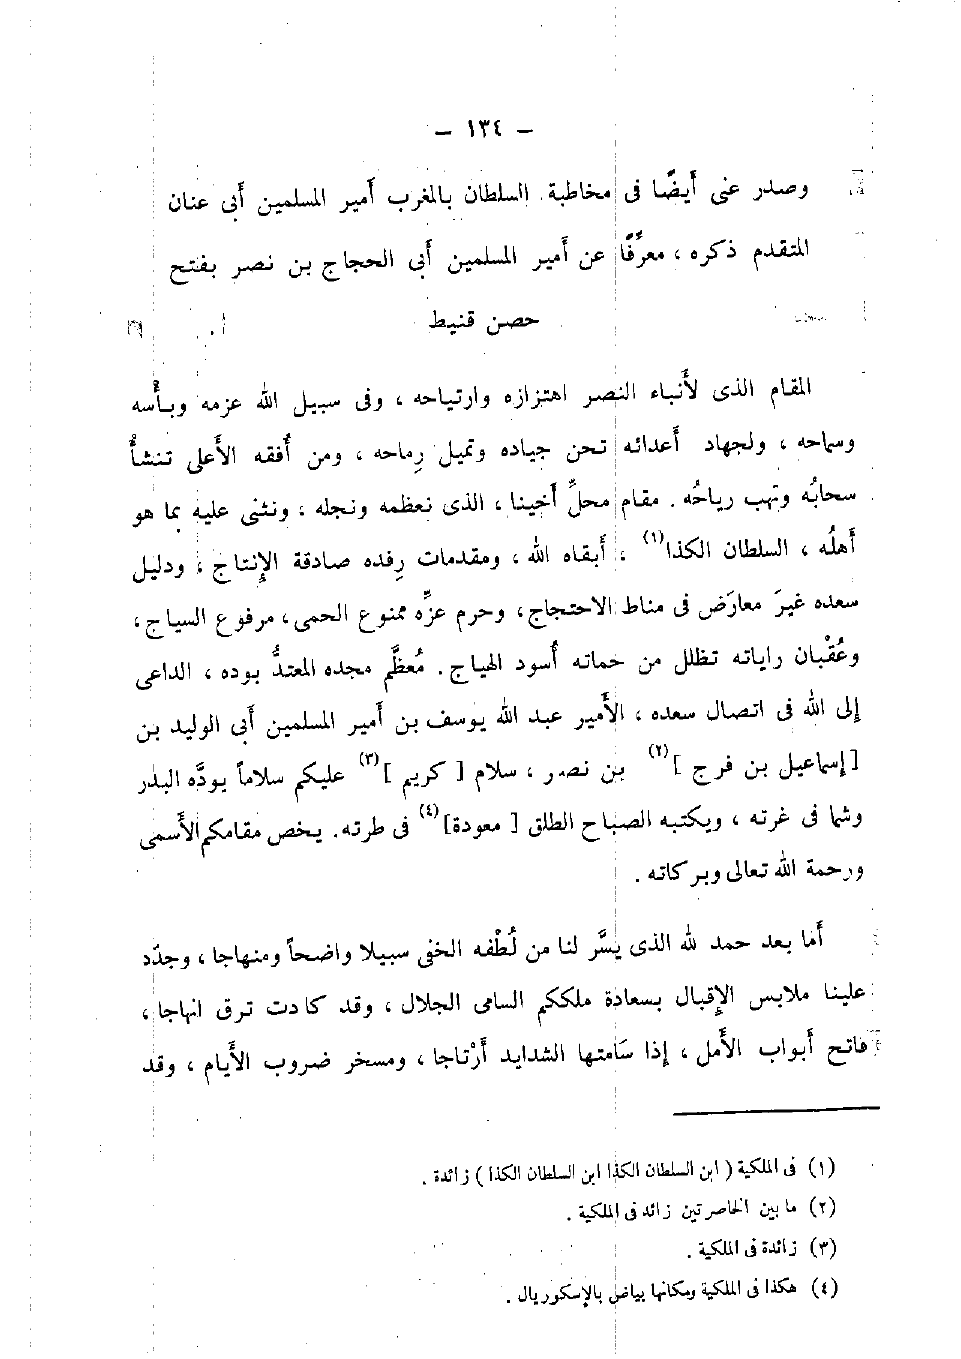 — ١٣٤ —
وصدر عنى أيضًا فى مخاطبة السلطان بالمغرب أمير المسلمين أبى عنان
المتقدم ذكره ، معرِّفًا عن أمير المسلمين أبى الحجاج بن نصر بفتح
حصن قنيط
المقام الذى لأَنباء النصر اهتزازه وارتياحه ، وفى سبيل الله عزمه وبأْسه
وسماحه ، ولجهاد أعدائه تحن جياده وتميل رِماحه ، ومن أُفقه الأَعلى تنشأُ
سحابُه وتهب رياحُه . مقام محلِّ أخينا ، الذى نعظمه ونجله ، ونثنى عليه بما هو
أهلُه ، السلطان الكذا(١) ، أبقاه الله ، ومقدمات رِفده صادقة الإِنتاج ، ودليل
سعده غيرَ معارَض فى مناط الاحتجاج، وحرم عزِّه ممنوع الحمى، مرفوع السياج ،
وعُقْبان راياته تظلل من حماته أُسود الهياج . مُعظَّم مجده المعتدُّ بوده ، الداعى
إلى الله فى اتصال سعده ، الأَمير عبد الله يوسف بن أمير المسلمين أبى الوليد بن
[ إسماعيل بن فرج ](٢) بن نصر ، سلام [ كريم ](٣) عليكم سلاماً يودَّه البدر
وشما فى غرته ، ويكتبه الصباح الطلق [ معودة ](٤) فى طرته. يخص مقامكم الأَسمى
ورحمة الله تعالى وبركاته .
أَما بعد حمد لله الذى يسَّر لنا من لُطْفه الخفى سبيلا واضحاً ومنهاجا ، وجدّد
علينا ملابس الإِقبال بسعادة ملككم السامى الجلال ، وقد كادت ترق انهاجا ،
فاتح أبواب الأَمل ، إذا سَامتها الشدايد أرْتاجا ، ومسخر ضروب الأَيام ، وقد
(١) فى الملكية ( ابن السلطان الكذا ابن السلطان الكذا ) زائدة .
(٢) ما بين الخاصرتين زائد فى الملكية .
(٣) زائدة فى الملكية .
(٤) هكذا فى الملكية ومكانها بياض بالإسكوريال .